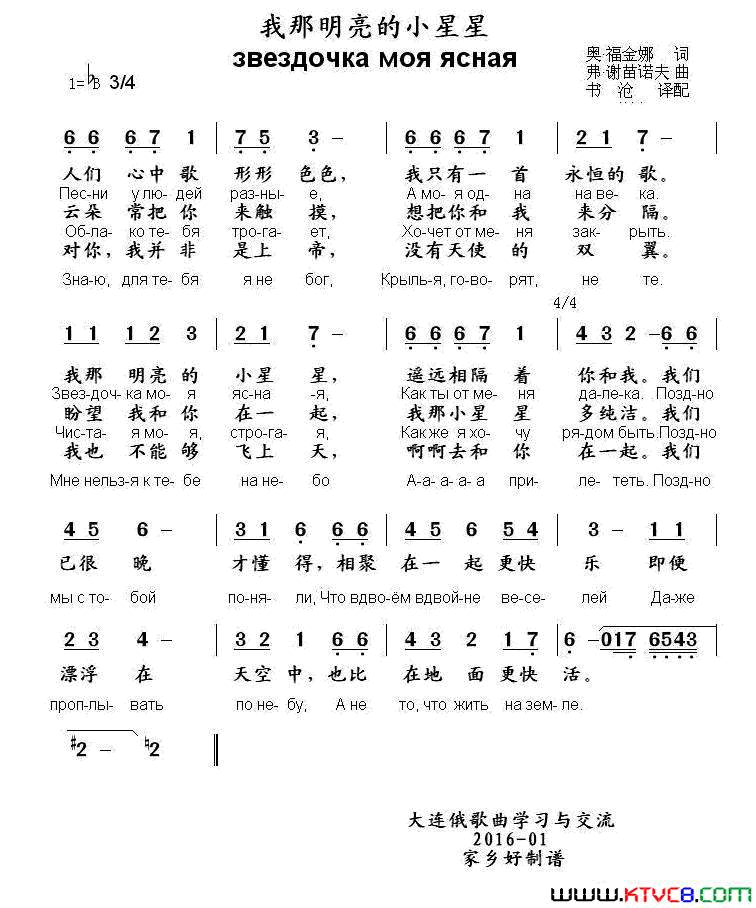 我那明亮的小星星
звездочка моя ясная
奥·福金娜 词
弗·谢苗诺夫 曲
书 沧 译配
1=♭B 3/4
6 6 6 7 1 | 7 5 3 – | 6 6 6 7 1 | 2 1 7 – |
人们 心中 歌 形形 色色， 我只有一 首 永恒的 歌。
Пес-ни у лю-дей раз-ны- е, А мо- я од- на на ве- ка.
云朵 常把 你 来触 摸， 想把你和 我 来分 隔。
Об-ла- ко те- бя тро-га- ет, Хо-чет от ме- ня зак- рыть.
对你，我并 非 是上 帝， 没有天使 的 双 翼。
Зна-ю, для те- бя я не бог, Крыль-я, го-во- рят, не те.
4/4
1 1 1 2 3 | 2 1 7 – | 6 6 6 7 1 | 4 3 2 – 6 6 |
我那 明亮 的 小星 星， 遥远相隔 着 你和我。我们
Звез-доч- ка мо- я яс-на -я, Как ты от ме- ня да-ле-ка. Позд-но
盼望 我和 你 在一 起， 我那小星 星 多纯洁。我们
Чис-та- я мо- я, стро-га- я, Как же я хо- чу ря-дом быть.Позд-но
我也 不能 够 飞上 天， 啊啊去和 你 在一起。我们
Мне нельз-я к те- бе на не-бо А-а- а- а при- ле- теть. Позд-но
4 5 6 – | 3 1 6 6 6 | 4 5 6 5 4 | 3 – 1 1 |
已很 晚 才懂 得，相聚 在一 起更快 乐 即便
мы с то- бой по-ня- ли, Что вдво-ём вдвой-не ве-се- лей Да-же
2 3 4 – | 3 2 1 6 6 | 4 3 2 1 7 | 6 – 0 1 7 6 5 4 3
漂浮 在 天空 中，也比 在地 面更快 活。
проп-лы- вать по не-бу, А не то, что жить на зем- ле.
♯2 – ♮2
大连俄歌曲学习与交流
2016-01
家乡好制谱
www.KTVC8.com